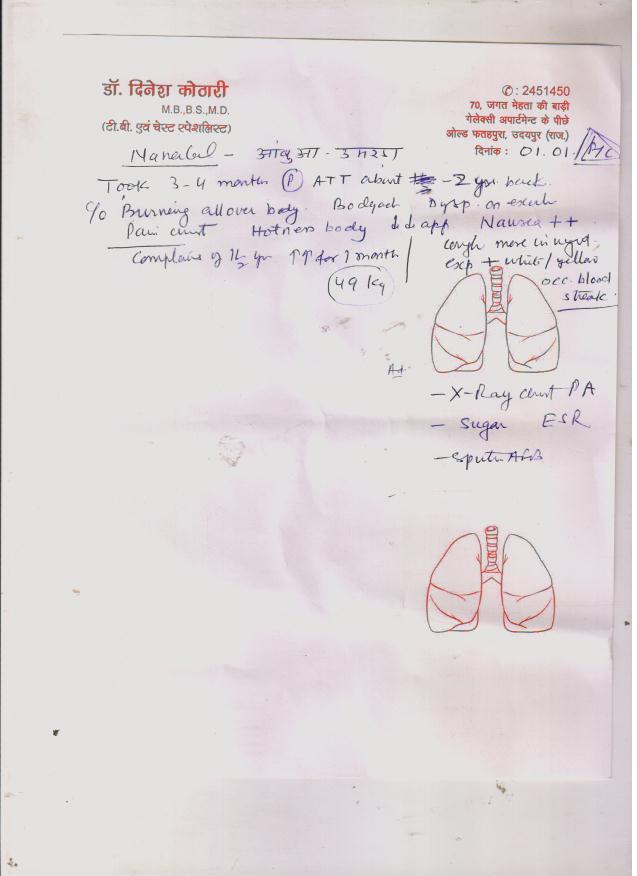 डॉ. दिनेश कोठारी
M.B.,B.S.,M.D.
(टी.बी. एवं चेस्ट स्पेशलिस्ट)
✆: 2451450
70, जगत मेहता की बाड़ी
गेलेक्सी अपार्टमेन्ट के पीछे
ओल्ड फतहपुरा, उदयपुर (राज.)
दिनांक : 01.01.
Took 3-4 months (P) ATT about -2 yrs back.
C/o Burning all over body. Bodyach Dysp. on exert
Pain chest Hotness body ↓↓ app. Nausea ++
Complains of 1½ yr ↑↑ for 1 month
cough more in night
exp + white/yellow
occ. blood
streak.
49 kg
- X-Ray chest PA
- Sugar ESR
- Sputum AFB